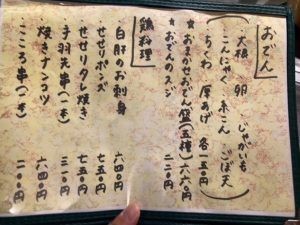 おでん
大根 卵 じゃがいも
こんにゃく 糸こん ごぼ天
ちくわ 厚あげ 各一五〇円
★おまかせおでん盛(五種)六六〇円
★おでんのスジ 二二〇円
鶏料理
白肝のお刺身 六四〇円
せせりポンズ 七五〇円
せせりタレ焼き 七五〇円
手羽先串(一本) 三一〇円
焼きナンコツ 六四〇円
こころ串(一本) 二一〇円